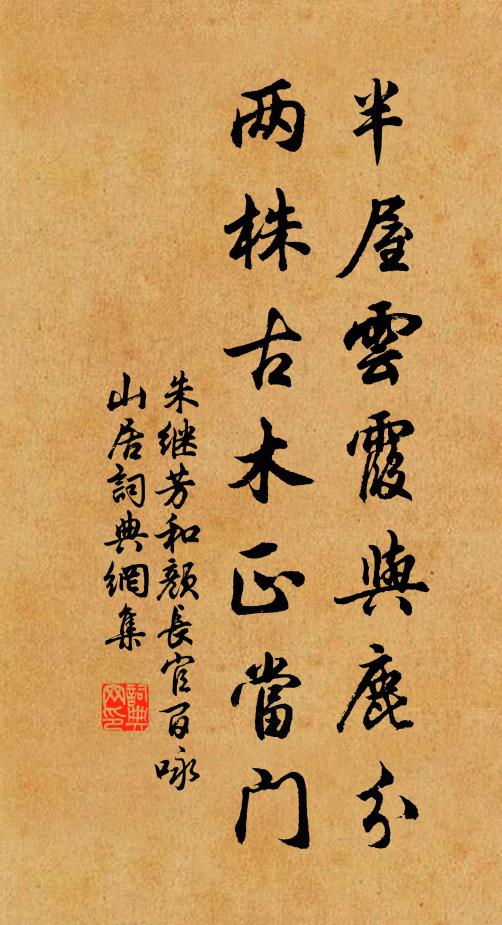 半屋雲霞與鹿分
两株古木正當門
朱继芳和颜長官百咏
山居詞典網集
詞典网印